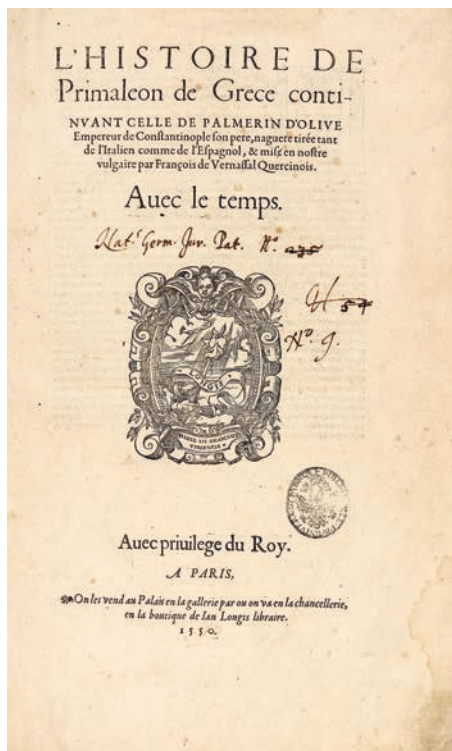 L'HISTOIRE DE
Primaleon de Grece conti-
NVANT CELLE DE PALMERIN D'OLIVE
Empereur de Constantinople son pere, naguere tirée tant
de l'Italien comme de l'Espagnol, & mise en nostre
vulgaire par François de Vernassal Quercinois.
Auec le temps.
Nat.s Germ. Jur. Pat. N.o 235
H 57
N.o 9.
LONGIS
Auec priuilege du Roy.
A PARIS,
On les vend au Palais en la gallerie par ou on va en la chancellerie,
en la boutique de Ian Longis libraire.
1550.